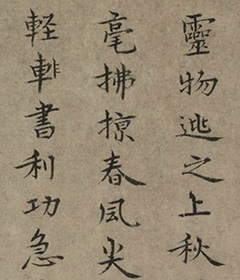 靈物逃之上秋
毫拂掠春風尖
軽書利功急